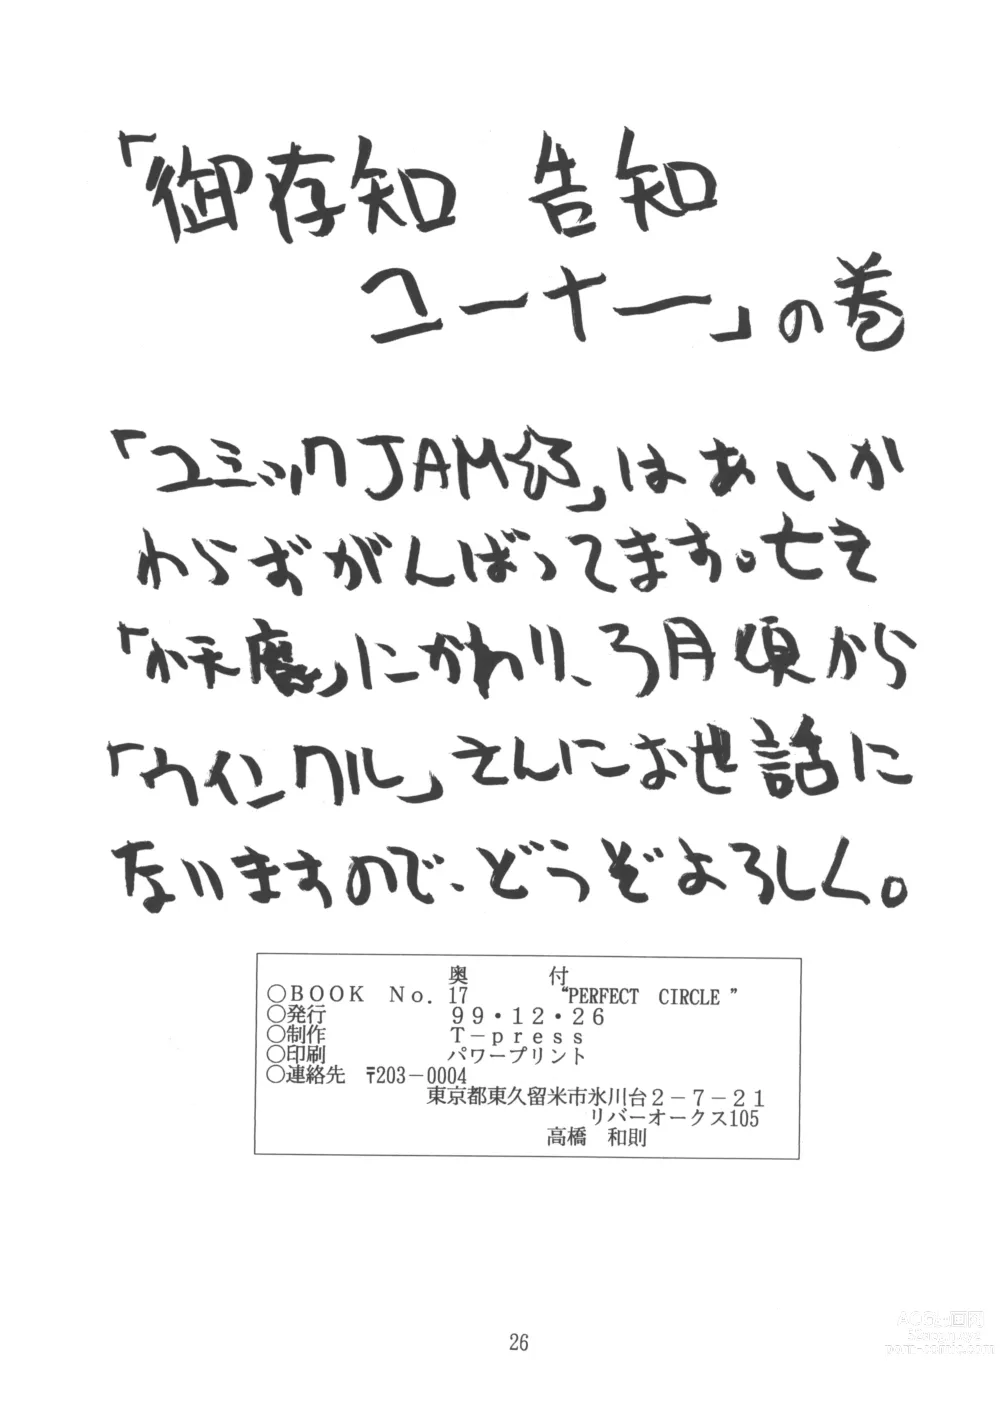 「御存知 告知
コーナー」の巻
「コミックJAM☆」はあいか
わらずがんばってます。亡き
にかわり、3月頃から
「ウインクル」さんにお世話に
なりますので、どうぞよろしく。
奥　　　付
○ＢＯＯＫ　Ｎｏ．17　　“PERFECT CIRCLE”
○発行　９９・１２・２６
○制作　Ｔ－ｐｒｅｓｓ
○印刷　パワープリント
○連絡先　〒203－0004
東京都東久留米市氷川台２－７－２１
リバーオークス105
高橋　和則
26